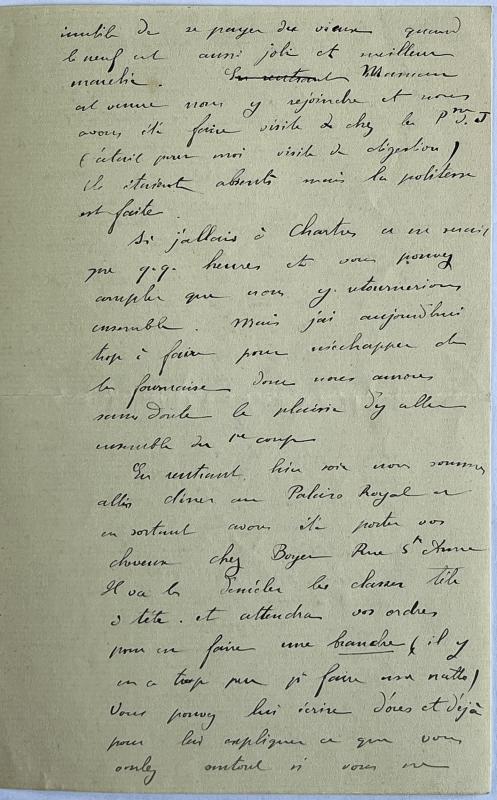 inutile de se payer du vieux quand
le neuf est aussi joli et meilleur
marché. En rentrant Maman
est venue nous y rejoindre et nous
avons été faire visite de chez les
(c'était pour moi visite de digestion)
ils étaient absents mais la politesse
est faite.
Si j'allais à Chartres ce ne serait
que q.q. heures et vous pouvez
compter que nous y retournerions
ensemble. Mais j'ai aujourd'hui
trop à faire pour m'échapper de
la fournaise donc nous aurons
sans doute le plaisir d'y aller
ensemble du 1er coup
En rentrant hier soir nous sommes
allés dîner au Palais Royal et
en sortant avons été porter vos
cheveux chez Boyer Rue Ste Anne
Il va les démêler les classer tête
à tête. et attendra vos ordres
pour en faire une branche (il y
en a trop peu pr faire une natte)
Vous pouvez lui écrire d'ores et déjà
pour lui expliquer ce que vous
voulez surtout si vous ne